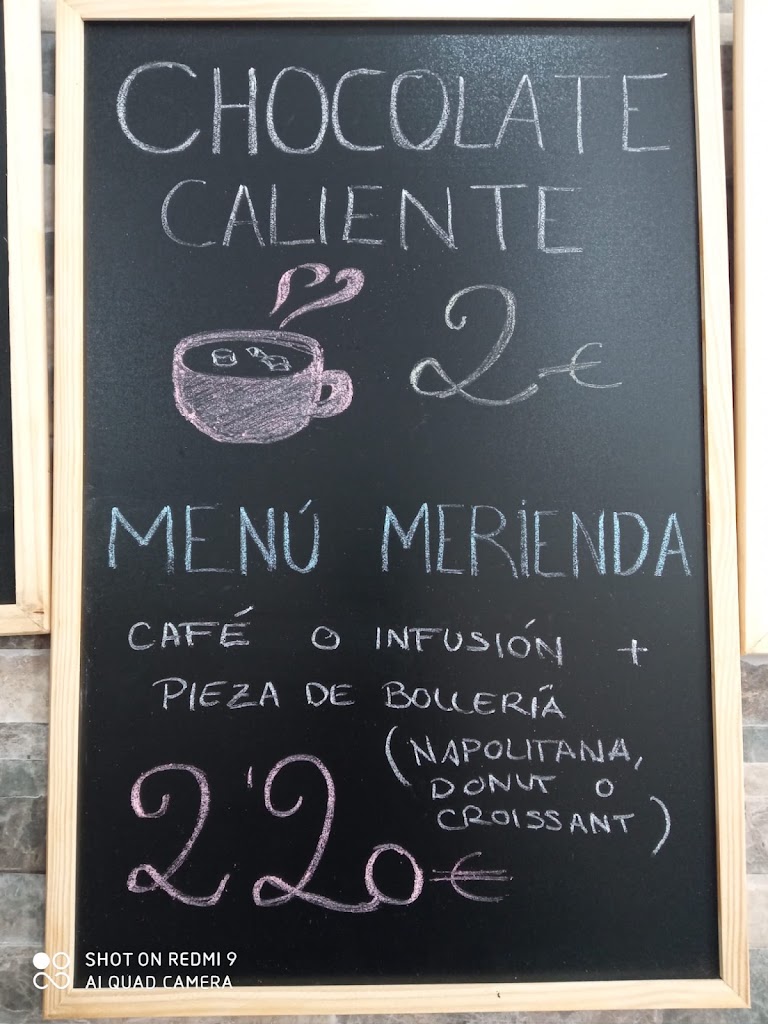 CHOCOLATE
CALIENTE
2€
MENÚ MERIENDA
CAFÉ O INFUSIÓN +
PIEZA DE BOLLERÍA
(NAPOLITANA,
DONUT O
CROISSANT)
2'20€
SHOT ON REDMI 9
AI QUAD CAMERA